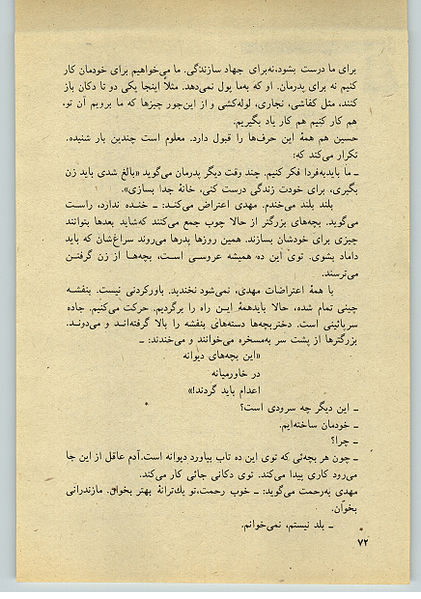 برای ما درست بشود،نه‌برای جهاد سازندگی. ما می‌خواهیم برای خودمان کار
کنیم نه برای پدرمان. او که به‌ما پول نمی‌دهد. مثلاً اینجا یکی دو تا دکان باز
کنند، مثل کفاشی، نجاری، لوله‌کشی و از این‌جور چیزها که ما برویم آن تو،
هم کار کنیم هم کار یاد بگیریم.
حسین هم همهٔ این حرف‌ها را قبول دارد. معلوم است چندین بار شنیده.
تکرار می‌کند که:
ـ ما بایدبه‌فردا فکر کنیم. چند وقت دیگر پدرمان می‌گوید «بالغ شدی باید زن
بگیری، برای خودت زندگی درست کنی، خانهٔ جدا بسازی».
بلند بلند می‌خندم. مهدی اعتراض می‌کنـد: ـ خنـده ندارد، راسـت
می‌گوید. بچه‌های بزرگتر از حالا چوب جمع می‌کنند که‌شاید بعدها بتوانند
چیزی برای خودشان بسازند. همین روزها پدرها می‌روند سراغ‌شان که باید
داماد بشوی. توی این ده، همیشه عروسـی اسـت، بچه‌هـا از زن گرفتـن
می‌ترسند.
با همهٔ اعتراضات مهدی، نمی‌شود نخندید. باورکردنی نیست. بنفشـه
چینی تمام شده، حالا بایدهمهٔ ایـن راه را برگردیم. حرکت می‌کنیم. جاده
سربائینی است. دختربچه‌ها دسته‌های بنفشه را بالا گرفته‌انـد و می‌دونـد.
بزرگترها از پشت سر به‌مسخره می‌خوانند و می‌خندند: ـ
«این بچه‌های دیوانه
در خاورمیانه
اعدام باید گردند!»
ـ این دیگر چه سرودی است؟
ـ خودمان ساخته‌ایم.
ـ چرا؟
ـ چون هر بچه‌ئی که توی این ده تاب بیاورد دیوانه است.آدم عاقل از این جا
می‌رود کاری پیدا می‌کند. توی دکانی جائی کار می‌کند.
مهدی به‌رحمت می‌گوید: ـ خوب رحمت،تو یك‌ترانهٔ بهتر بخوان. مازندرانی
بخوان.
ـ بلد نیستم، نمی‌خوانم.
۷۲